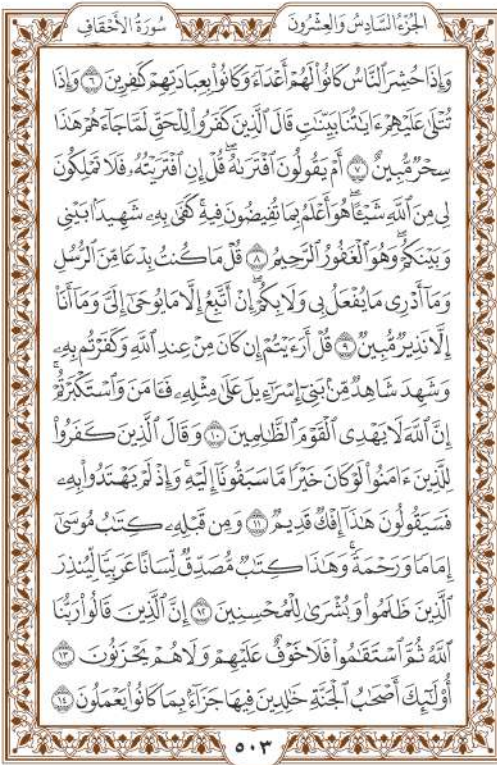 الجُزْءُ السَّادِسُ وَالعِشْرُونَ سُورَةُ الأَحْقَافِ
وَإِذَا حُشِرَ ٱلنَّاسُ كَانُوا۟ لَهُمْ أَعْدَآءً وَكَانُوا۟ بِعِبَادَتِهِمْ كَـٰفِرِينَ ٦ وَإِذَا
تُتْلَىٰ عَلَيْهِمْ ءَايَـٰتُنَا بَيِّنَـٰتٍ قَالَ ٱلَّذِينَ كَفَرُوا۟ لِلْحَقِّ لَمَّا جَآءَهُمْ هَـٰذَا
سِحْرٌ مُّبِينٌ ٧ أَمْ يَقُولُونَ ٱفْتَرَىٰهُ ۖ قُلْ إِنِ ٱفْتَرَيْتُهُۥ فَلَا تَمْلِكُونَ
لِى مِنَ ٱللَّهِ شَيْـًٔا ۖ هُوَ أَعْلَمُ بِمَا تُفِيضُونَ فِيهِ ۖ كَفَىٰ بِهِۦ شَهِيدًۢا بَيْنِى
وَبَيْنَكُمْ ۖ وَهُوَ ٱلْغَفُورُ ٱلرَّحِيمُ ٨ قُلْ مَا كُنتُ بِدْعًا مِّنَ ٱلرُّسُلِ
وَمَآ أَدْرِى مَا يُفْعَلُ بِى وَلَا بِكُمْ ۖ إِنْ أَتَّبِعُ إِلَّا مَا يُوحَىٰٓ إِلَىَّ وَمَآ أَنَا۠
إِلَّا نَذِيرٌ مُّبِينٌ ٩ قُلْ أَرَءَيْتُمْ إِن كَانَ مِنْ عِندِ ٱللَّهِ وَكَفَرْتُم بِهِۦ
وَشَهِدَ شَاهِدٌ مِّنۢ بَنِىٓ إِسْرَٰٓءِيلَ عَلَىٰ مِثْلِهِۦ فَـَٔامَنَ وَٱسْتَكْبَرْتُمْ ۖ
إِنَّ ٱللَّهَ لَا يَهْدِى ٱلْقَوْمَ ٱلظَّـٰلِمِينَ ١٠ وَقَالَ ٱلَّذِينَ كَفَرُوا۟
لِلَّذِينَ ءَامَنُوا۟ لَوْ كَانَ خَيْرًا مَّا سَبَقُونَآ إِلَيْهِ ۚ وَإِذْ لَمْ يَهْتَدُوا۟ بِهِۦ
فَسَيَقُولُونَ هَـٰذَآ إِفْكٌ قَدِيمٌ ١١ وَمِن قَبْلِهِۦ كِتَـٰبُ مُوسَىٰٓ
إِمَامًا وَرَحْمَةً ۚ وَهَـٰذَا كِتَـٰبٌ مُّصَدِّقٌ لِّسَانًا عَرَبِيًّا لِّيُنذِرَ
ٱلَّذِينَ ظَلَمُوا۟ وَبُشْرَىٰ لِلْمُحْسِنِينَ ١٢ إِنَّ ٱلَّذِينَ قَالُوا۟ رَبُّنَا
ٱللَّهُ ثُمَّ ٱسْتَقَـٰمُوا۟ فَلَا خَوْفٌ عَلَيْهِمْ وَلَا هُمْ يَحْزَنُونَ ١٣
أُو۟لَـٰٓئِكَ أَصْحَـٰبُ ٱلْجَنَّةِ خَـٰلِدِينَ فِيهَا جَزَآءًۢ بِمَا كَانُوا۟ يَعْمَلُونَ ١٤
٥٠٣